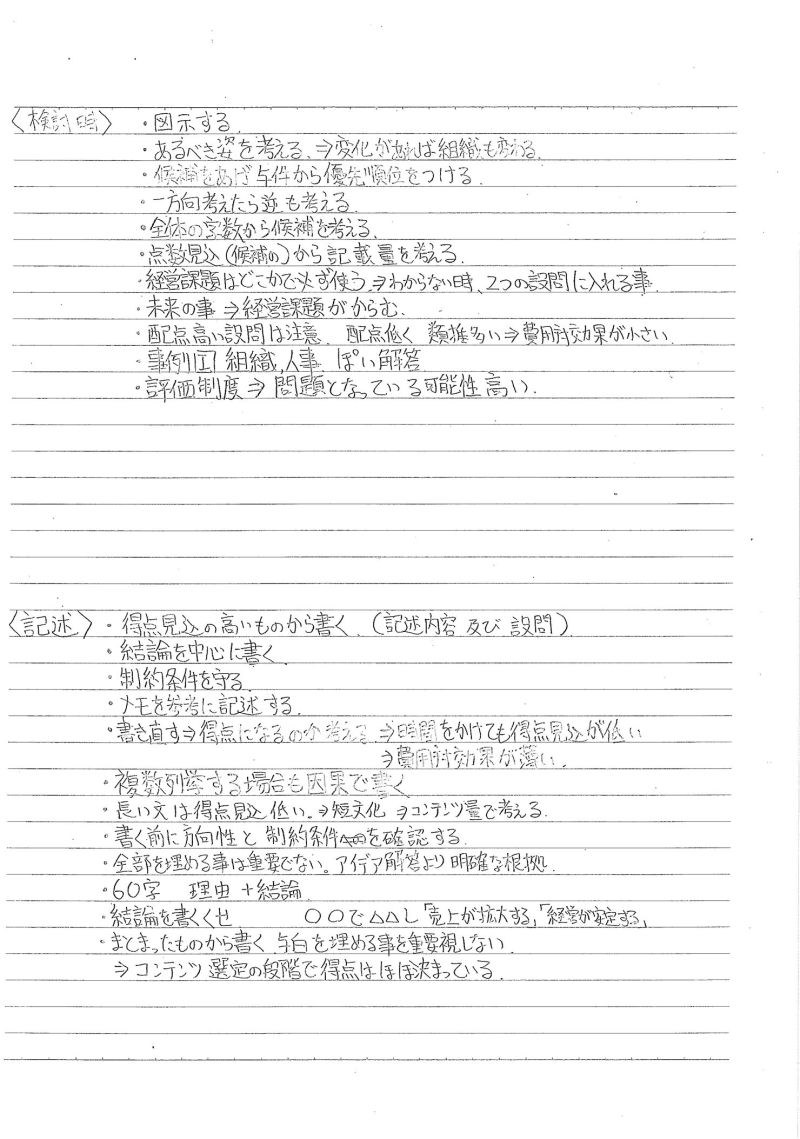 〈検討時〉 ・図示する.
・あるべき姿を考える.⇒変化があれば組織も変わる.
・候補をあげ与件から優先順位をつける.
・一方向考えたら逆も考える.
・全体の字数から候補を考える.
・点数見込(候補の)から記載量を考える.
・経営課題はどこかで必ず使う.⇒わからない時、2つの設問に入れる事.
・未来の事 ⇒経営課題がからむ.
・配点高い設問は注意. 配点低く 類推多い⇒費用対効果が小さい.
・事例Ⅰ 組織,人事 ぽい解答
・評価制度 ⇒ 問題となっている可能性高い.
〈記述〉 ・得点見込の高いものから書く.(記述内容 及び 設問)
・結論を中心に書く
・制約条件を守る.
・メモを参考に記述する.
・書き直す⇒得点になるのか考える ⇒時間をかけても得点見込が低い
⇒費用対効果が薄い.
・複数列挙する場合も因果で書く
・長い文は得点見込低い.⇒短文化 ⇒コンテンツ量で考える.
・書く前に方向性と 制約条件を確認する.
・全部を埋める事は重要でない。アイデア解答より明確な根拠.
・60字 理由 +結論.
・結論を書くくせ 〇〇で△△し「売上が拡大する」「経営が安定する」
・まとまったものから書く 与白を埋める事を重要視しない.
⇒コンテンツ 選定の段階で得点はほぼ決まっている.